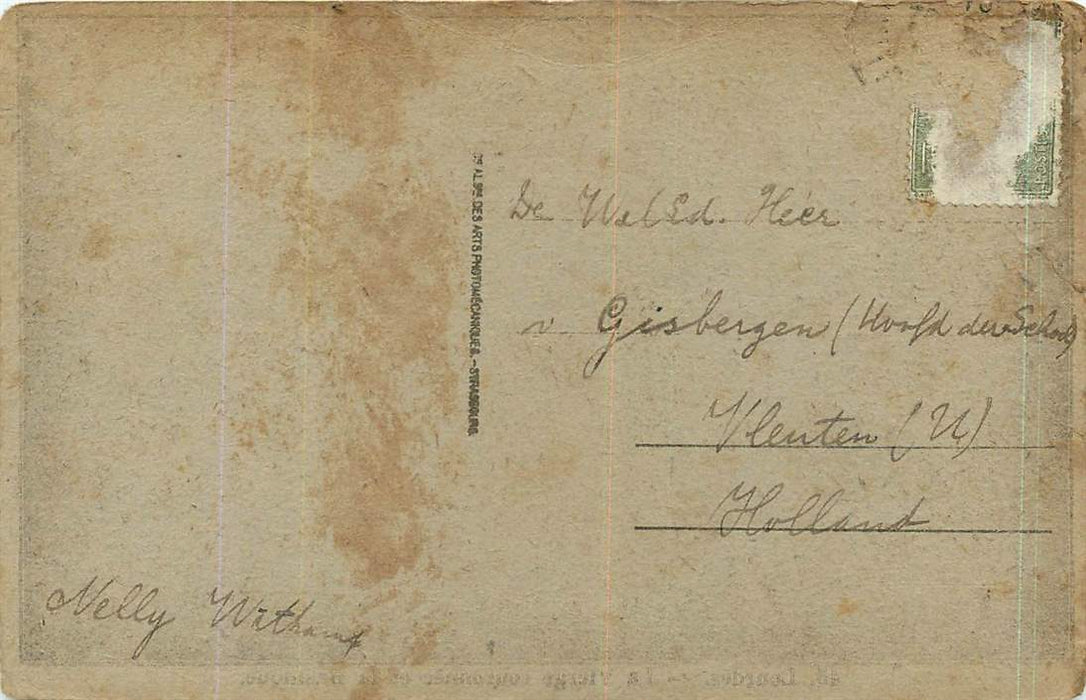 De WelEd. Heer
v Gisbergen (Hoofd der School)
Vleuten (U)
Holland
Nelly
DES ARTS PHOTOMÉCANIQUES. — STRASBOURG.